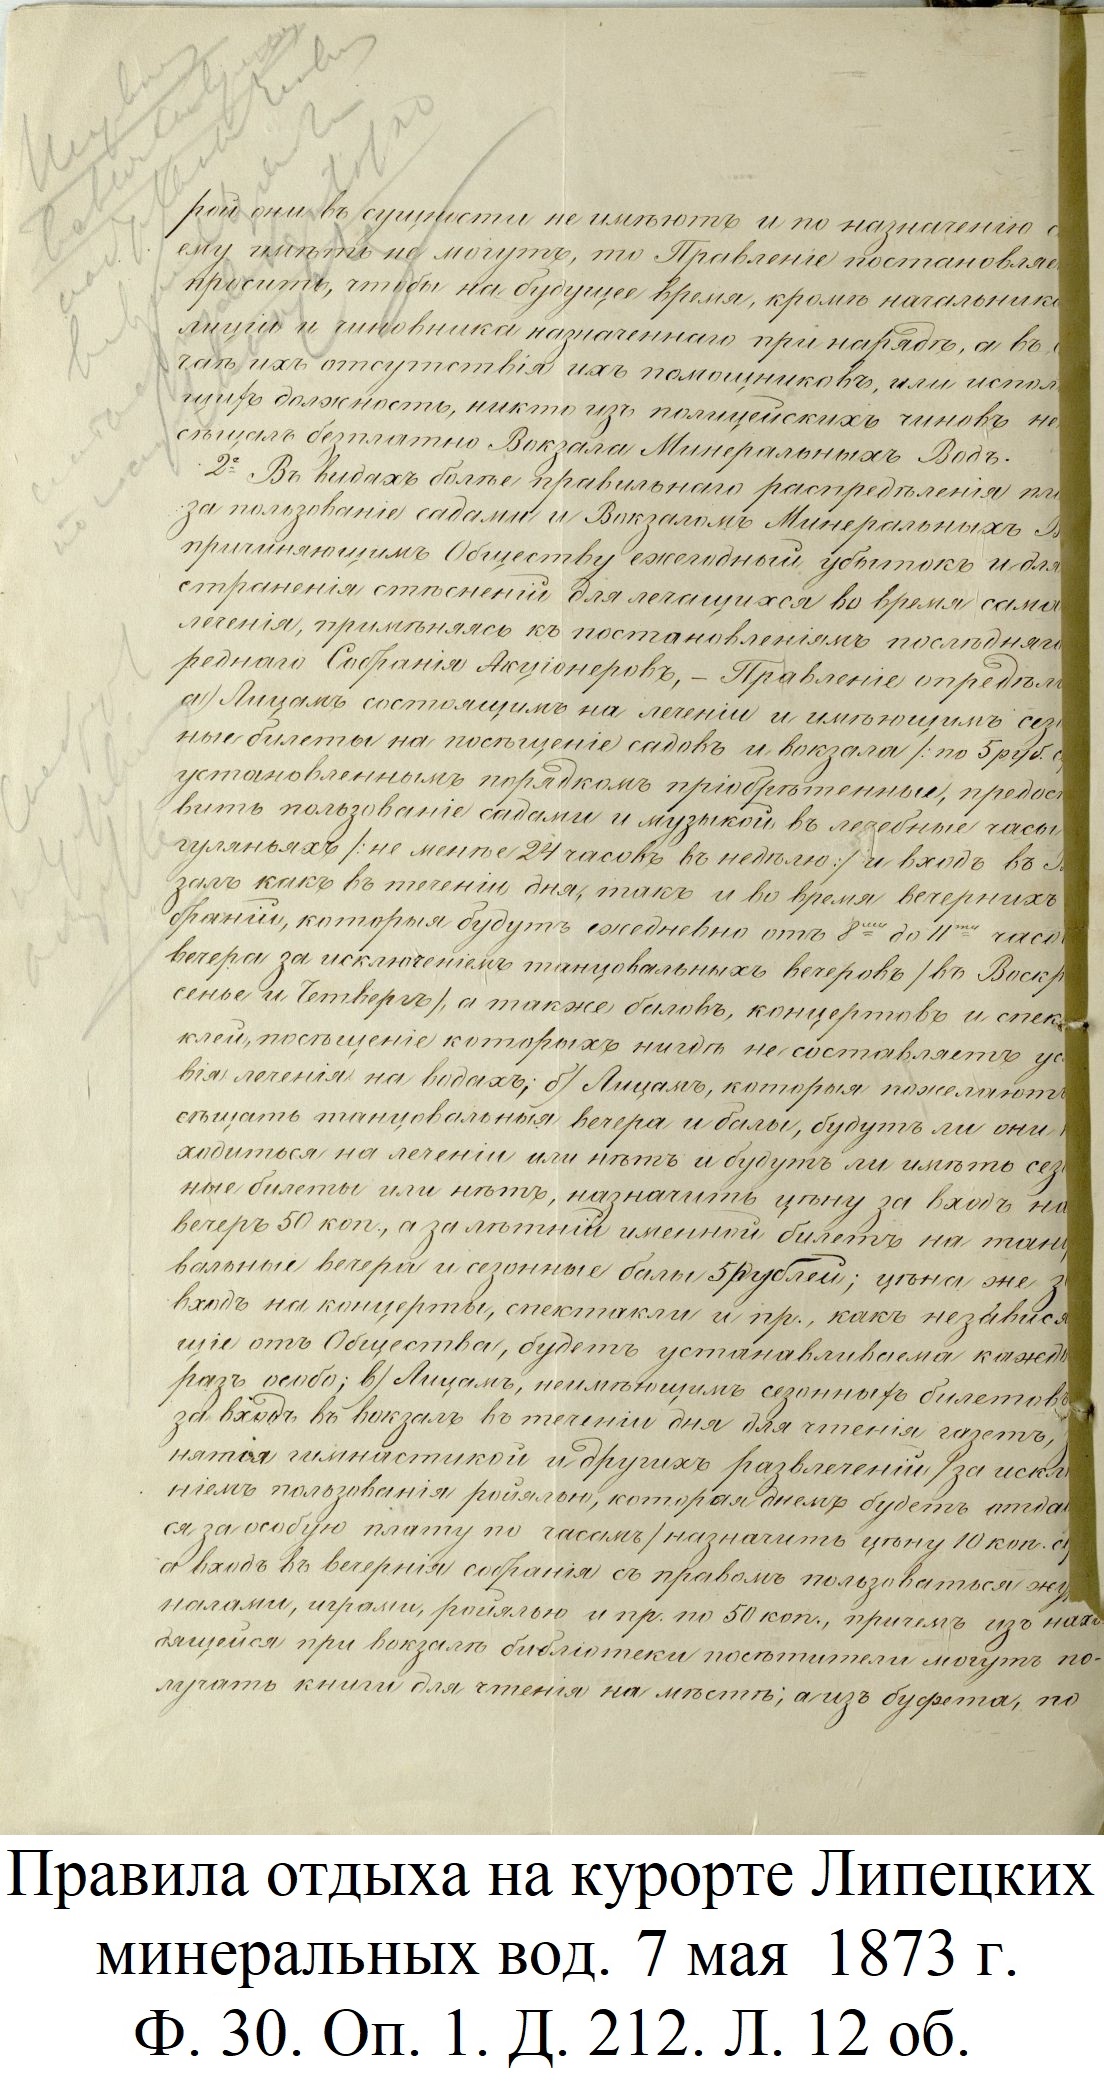 рой они въ сущности не имѣютъ и по назначенію с
ему имѣть не могутъ, то Правленіе постановляе
просить, чтобы на будущее время, кромѣ начальник
лиціи и чиновника назначеннаго при нарядѣ, а въ с
чаѣ ихъ отсутствія ихъ помощниковъ, или испол
щихъ должность, никто изъ полицейскихъ чиновъ не
сѣщалъ безплатно Вокзала Минеральныхъ Водъ.
2е Въ видахъ болѣе правильнаго распредѣленія пл
за пользованіе садами и Вокзаломъ Минеральныхъ В
причиняющимъ Обществу ежегодный убытокъ и для
страненія стѣсненій для лечащихся во время само
леченія, примѣняясь къ постановленіямъ послѣдняго
реднаго Собранія Акціонеровъ, – Правленіе опредѣли
а) Лицамъ состоящимъ на леченіи и имѣющимъ сез
ные билеты на посѣщеніе садовъ и вокзала /: по 5 руб. с
установленнымъ порядкомъ пріобрѣтенные, предост
вить пользованіе садами и музыкой въ лечебные часы
гуляньяхъ /: не менѣе 24 часовъ въ недѣлю :/ и входъ въ В
залъ какъ въ теченіи дня, такъ и во время вечернихъ
браній, которыя будутъ ежедневно отъ 8ми до 11ти часо
вечера за исключеніемъ танцовальныхъ вечеровъ / въ Воскр
сенье и Четвергъ /, а также баловъ, концертовъ и спек
клей, посѣщеніе которыхъ нигдѣ не составляетъ ус
вія леченія на водахъ; б) Лицамъ, которыя пожелаютъ
сѣщать танцовальныя вечера и балы, будутъ ли они
ходиться на леченіи или нѣтъ и будутъ ли имѣть сез
ные билеты или нѣтъ, назначить цѣну за входъ на
вечеръ 50 коп., а за лѣтній именной билетъ на танц
вальные вечера и сезонные балы 5 рублей; цѣна же з
входъ на концерты, спектакли и пр., какъ независя
щіе отъ Общества, будетъ устанавливаема кажды
разъ особо; в) Лицамъ, неимѣющимъ сезонныхъ билетовъ
за входъ въ вокзалъ въ теченіи дня для чтенія газетъ,
нятія гимнастикой и другихъ развлеченій / за искл
ніемъ пользованія роялью, которая днемъ будетъ отда
ся за особую плату по часамъ / назначить цѣну 10 коп. с
а входъ въ вечернія собранія съ правомъ пользоваться жу
налами, играми, роялью и пр. по 50 коп., причемъ изъ нахо
дящейся при вокзалѣ библіотеки посѣтители могутъ по-
лучать книги для чтенія на мѣстѣ; а изъ буфета, по
Правила отдыха на курорте Липецких
минеральных вод. 7 мая 1873 г.
Ф. 30. Оп. 1. Д. 212. Л. 12 об.